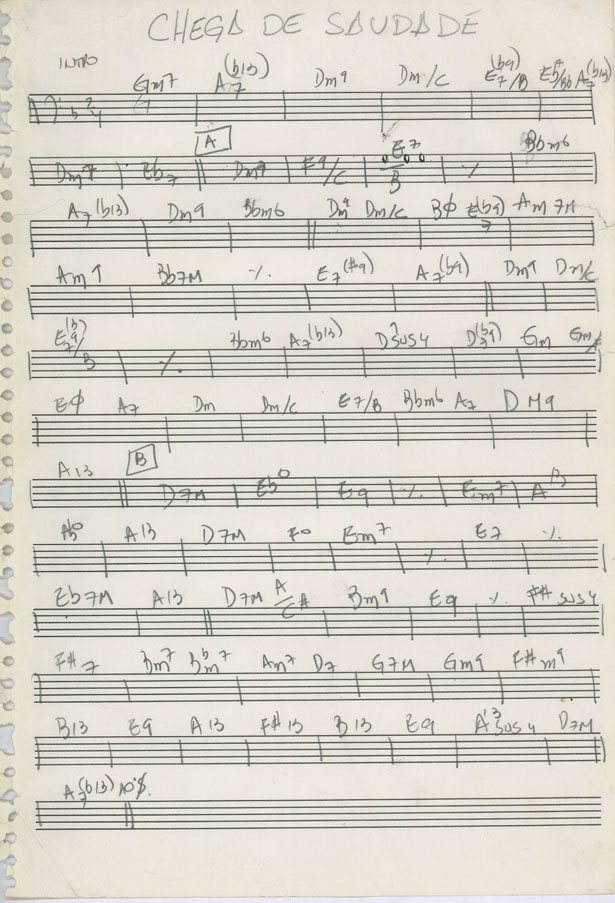 CHEGA DE SAUDADE
INTRO Gm7 A7(b13) Dm9 Dm/C E7(b9)/B Eb7/Bb A7(b13)
2/4
Dm7 Eb7 A Dm9 F9/C E7/B ٪ Bbm6
A7(b13) Dm9 Bbm6 Dm9 Dm/C BØ E7(b9) Am7M
Am9 Bb7M ٪ E7(#9) A7(b9) Dm9 Dm/C
E7(b9)/B ٪ Bbm6 A7(b13) D7SUS4 D7(b9) Gm Gm/F
EØ A7 Dm Dm/C E7/B Bbm6 A7 DM9
A13 B D7M Ebº E9 ٪ Em7 A13
Abº A13 D7M Fº Em7 ٪ E7 ٪
Eb7M A13 D7M A/C# Bm9 E9 ٪ F# SUS4
F#7 Bm7 Bbm7 Am7 D7 G7M Gm9 F#m9
B13 E9 A13 F#13 B13 E9 A13SUS4 D7M
A7(b13) AO